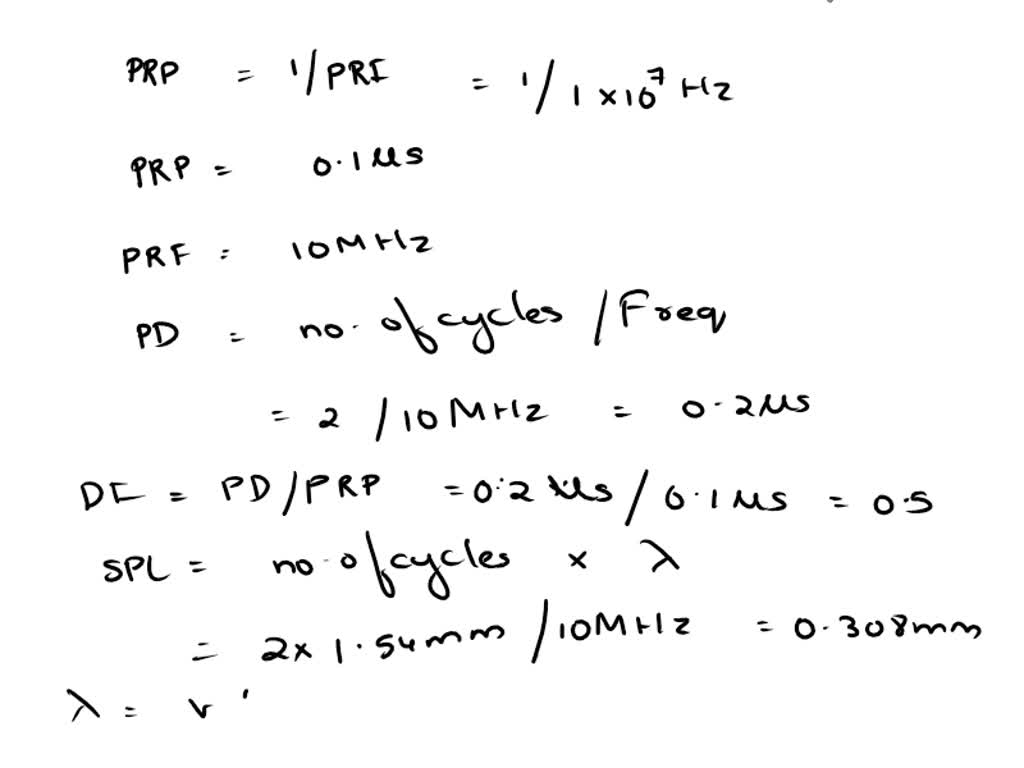 PRP = 1/PRI = 1/1×10⁷ Hz
PRP = 0.1 μs
PRF = 10MHz
PD = no. of cycles / Freq
= 2 / 10 MHz = 0.2 μs
DF = PD/PRP = 0.2 μs / 0.1 μs = 0.5
SPL = no. of cycles × λ
= 2 × 1.54mm / 10MHz = 0.308mm
λ = v